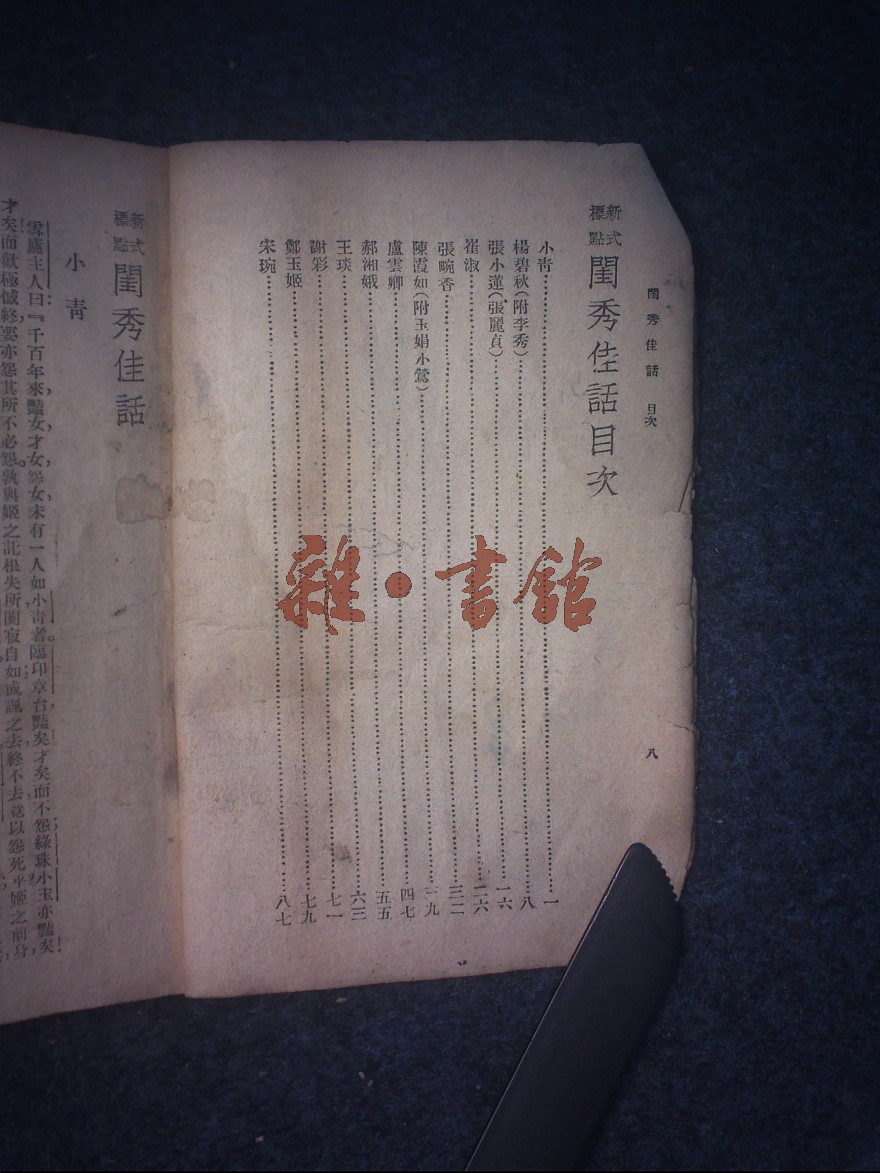 閨秀佳話 目次
八
新式標點 閨秀佳話目次
小青……一
楊碧秋(附李秀)……八
張小蓮(張麗貞)……一六
崔淑……二六
張畹香……三二
陳霞如(附玉娟小鶯)……三九
盧雲卿……四七
郝湘娥……五五
王琰……六三
謝彩……七一
鄭玉姬……七九
宋琬……八七
雜·書館
新式標點 閨秀佳話
小青
雲廬主人曰:『千百年來,豔女,才女,怨女,未有一人如小青者。臨印章台,豔矣,才矣,而不怨;綠珠小玉,亦豔矣!
才矣!而獃極憾終,要亦怨其所不必怨。孰與姬之託根失所,闃寂自如,諷之去,終不去,竟以怨死乎?姬之前身,